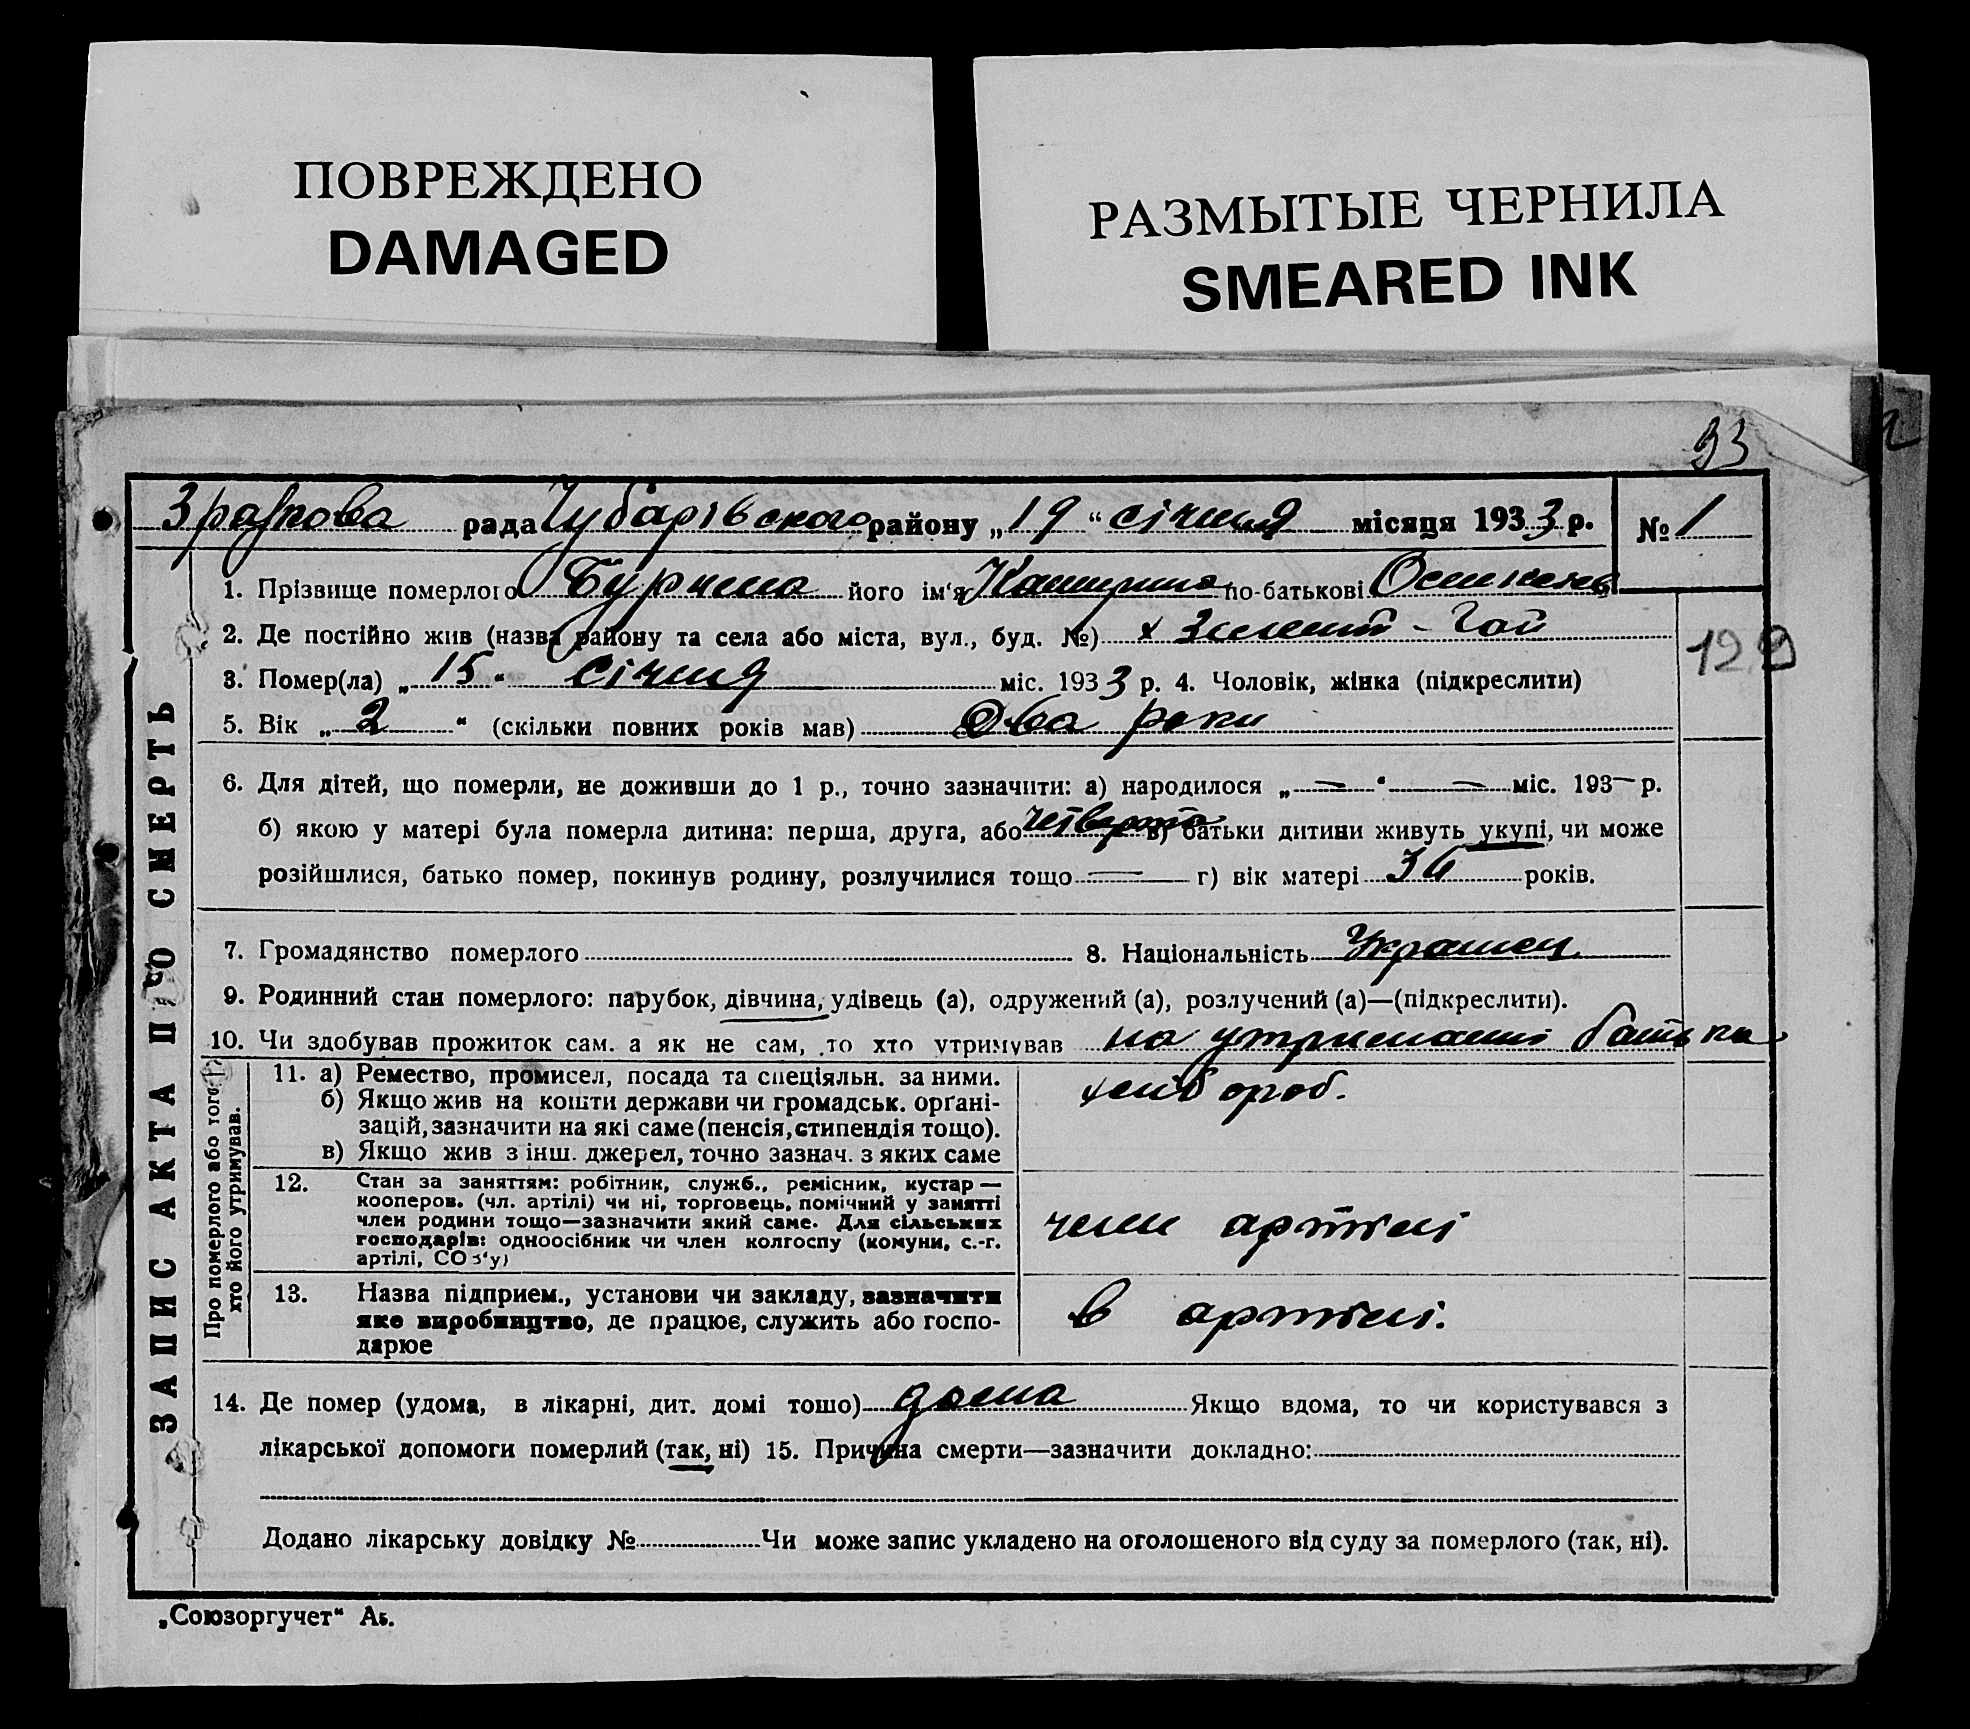 ПОВРЕЖДЕНО
DAMAGED
РАЗМЫТЫЕ ЧЕРНИЛА
SMEARED INK
93
рада Чубарівского району „19“ січня місяця 1933 р. № 1
1. Прізвище померлого його ім'я по-батькові
2. Де постійно жив (назва району та села або міста, вул., буд. №) х Зелений-Гай
129
3. Помер(ла) „15“ січня міс. 1933 р. 4. Чоловік, жінка (підкреслити)
5. Вік „2“ (скільки повних років мав) Два роки
6. Для дітей, що померли, не доживши до 1 р., точно зазначити: а) народилося „—“ — міс. 193— р.
б) якою у матері була померла дитина: перша, друга, або четверта в) батьки дитини живуть укупі, чи може
розійшлися, батько помер, покинув родину, розлучилися тощо — г) вік матері років.
7. Громадянство померлого 8. Національність Украинец
9. Родинний стан померлого: парубок, дівчина, удівець (а), одружений (а), розлучений (а)—(підкреслити).
10. Чи здобував прожиток сам, а як не сам, то хто утримував на утриманні батька
ЗАПИС АКТА ПРО СМЕРТЬ
Про померлого або того,
хто його утримував.
11. а) Ремество, промисел, посада та спеціяльн. за ними.
б) Якщо жив на кошти держави чи громадськ. орґані-
зацій, зазначити на які саме (пенсія, стипендія тощо).
в) Якщо жив з інш. джерел, точно зазнач. з яких саме
хлібороб.
12. Стан за заняттям: робітник, служб., ремісник, кустар—
кооперов. (чл. артілі) чи ні, торговець, помічний у занятті
член родини тощо—зазначити який саме. Для сільських
господарів: одноосібник чи член колгоспу (комуни, с.-г.
артілі, СОЗ'у)
член артілі
13. Назва підприєм., установи чи закладу, зазначити
яке виробництво, де працює, служить або госпо-
дарює
в артілі.
14. Де помер (удома, в лікарні, дит. домі тошо) дома Якщо вдома, то чи користувався з
лікарської допомоги померлий (так, ні) 15. Причина смерти—зазначити докладно:
Додано лікарську довідку № Чи може запис укладено на оголошеного від суду за померлого (так, ні).
„Союзоргучет“